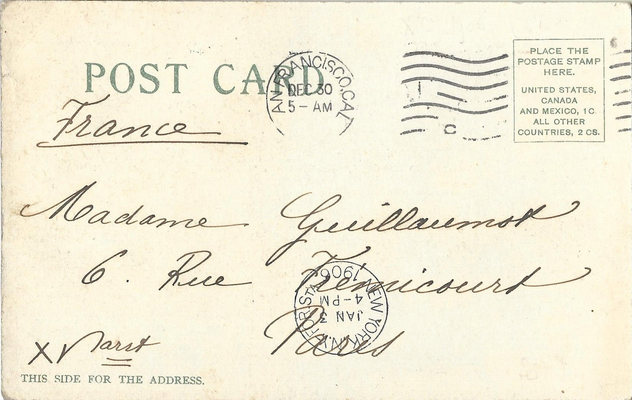 POST CARD
SAN FRANCISCO, CAL.
DEC 30
5-AM
C
PLACE THE
POSTAGE STAMP
HERE.
UNITED STATES,
CANADA
AND MEXICO, 1C
ALL OTHER
COUNTRIES, 2 CS.
France
Madame Guillaumot
6. Rue Frémicourt
Paris
NEW YORK, N.Y. FOR. STA.
JAN 3
4-PM
1906
X
THIS SIDE FOR THE ADDRESS.